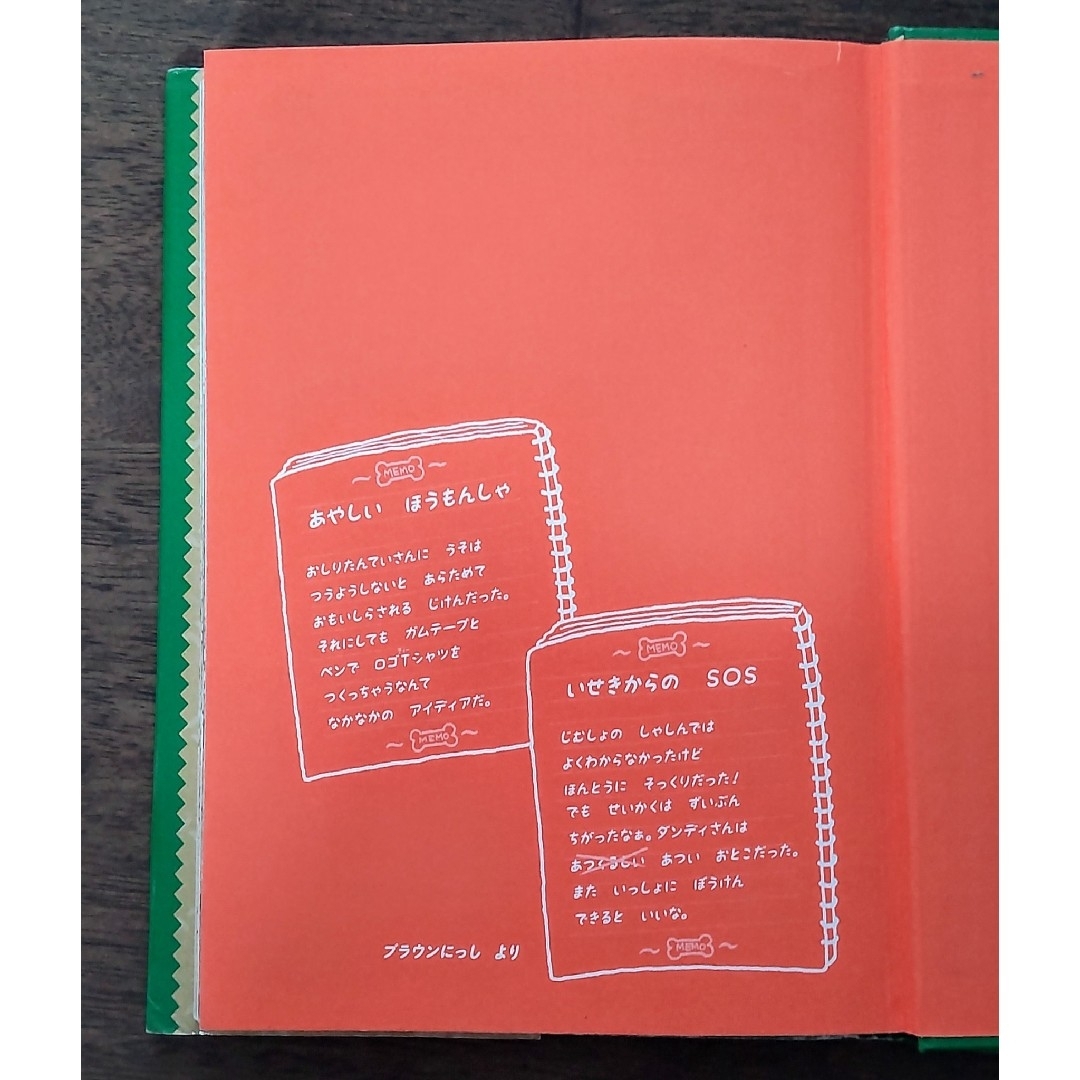 MEMO
あやしい　ほうもんしゃ
おしりたんていさんに　うそは
つうようしないと　あらためて
おもいしらされる　じけんだった。
それにしても　ガムテープと
ペンで　ロゴTシャツを
つくっちゃうなんて
なかなかの　アイディアだ。
MEMO
MEMO
いせきからの　SOS
じむしょの　しゃしんでは
よくわからなかったけど
ほんとうに　そっくりだった!
でも　せいかくは　ずいぶん
ちがったなぁ。ダンディさんは
あつくるしい　あつい　おとこだった。
また　いっしょに　ぼうけん
できると　いいな。
MEMO
ブラウンにっし　より